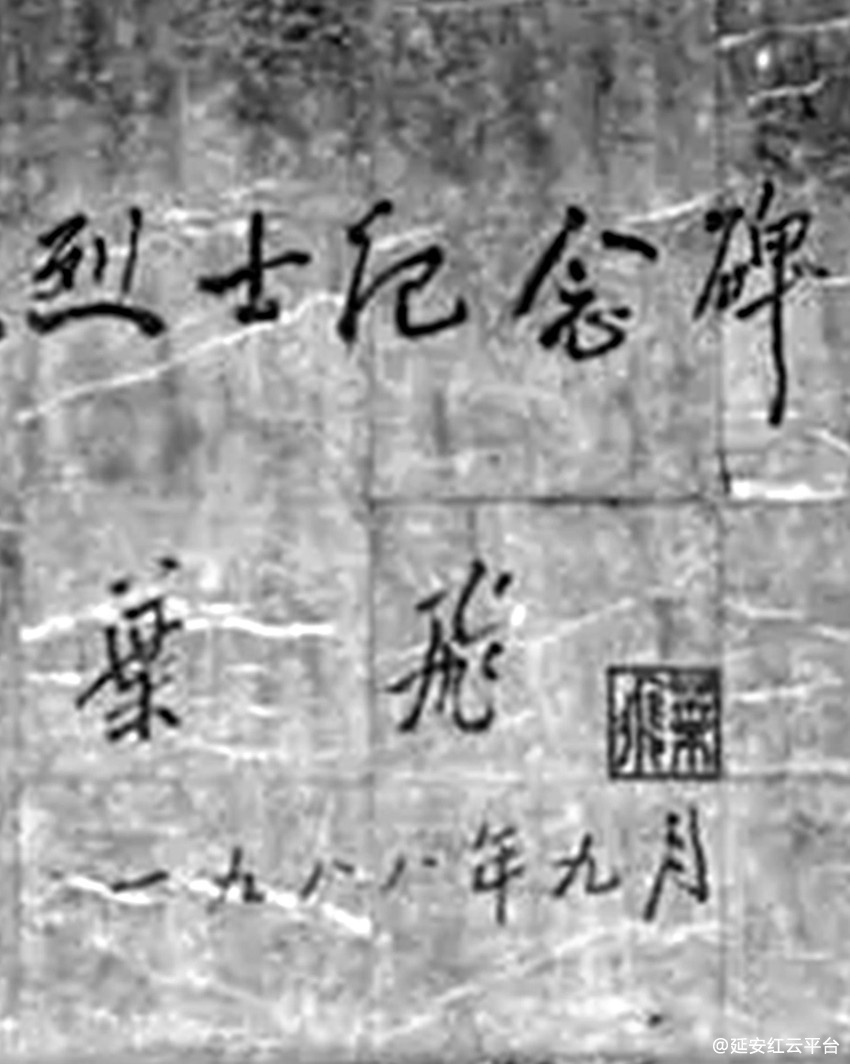 烈士纪念碑
葉飛
葉飛
一九八八年九月
@延安红云平台